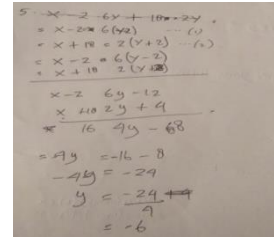 5. x - 2 6y + 18 = 2y
= x - 2 = 6(y2) ... (1)
= x + 18 = 2(y+2) ... (2)
= x - 2 = 6(y-2)
= x + 18 2(y
x - 2 6y - 12
x +18 2y + 4
16 4y - 68
= 4y = -16 - 8
-4y = -24
y = -24
4
= -6